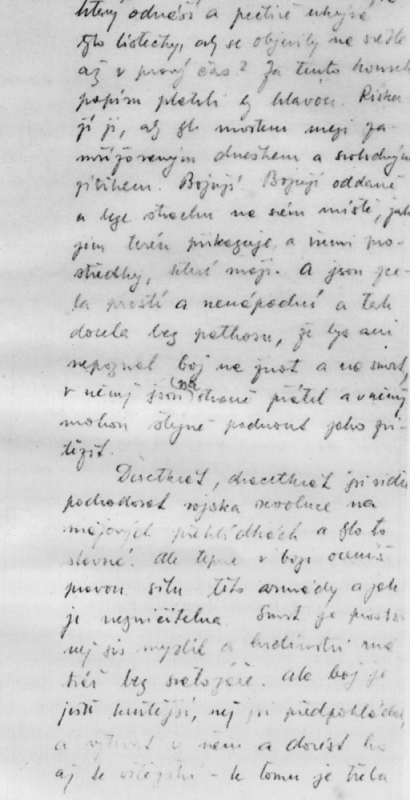 který odnáší a pečlivě ukrývá
tyto lístečky, aby se objevily na světle
až v pravý čas? Za tento kousek
papíru platili by hlavou.
jí ji, aby
mřížovaným dneškem a svobodným
zítřkem. Bojují. Bojují oddaně
a beze strachu na svém místě, jak
jim terén přikazuje, a všemi pro-
středky, které mají. A jsou zce-
la prostí a nenápadní a tak
docela bez pathosu, že bys ani
nepoznal boj na život a na smrt,
v němž jsou na straně přátel a v němž
mohou stejně padnout jako zví-
těžit.
Desetkrát, dvacetkrát jsi viděl
pochodovat vojska revoluce na
májových přehlídkách a bylo to
slavné. Ale teprve v boji oceníš
pravou sílu této armády a jak
je nezničitelná. Smrt je prostší
než sis myslil a hrdinství má
tvář bez svatozáře. Ale boj je
ještě krutější, než jsi předpokládal,
a vytrvat v něm a dovést ho
až k vítězství - k tomu je třeba